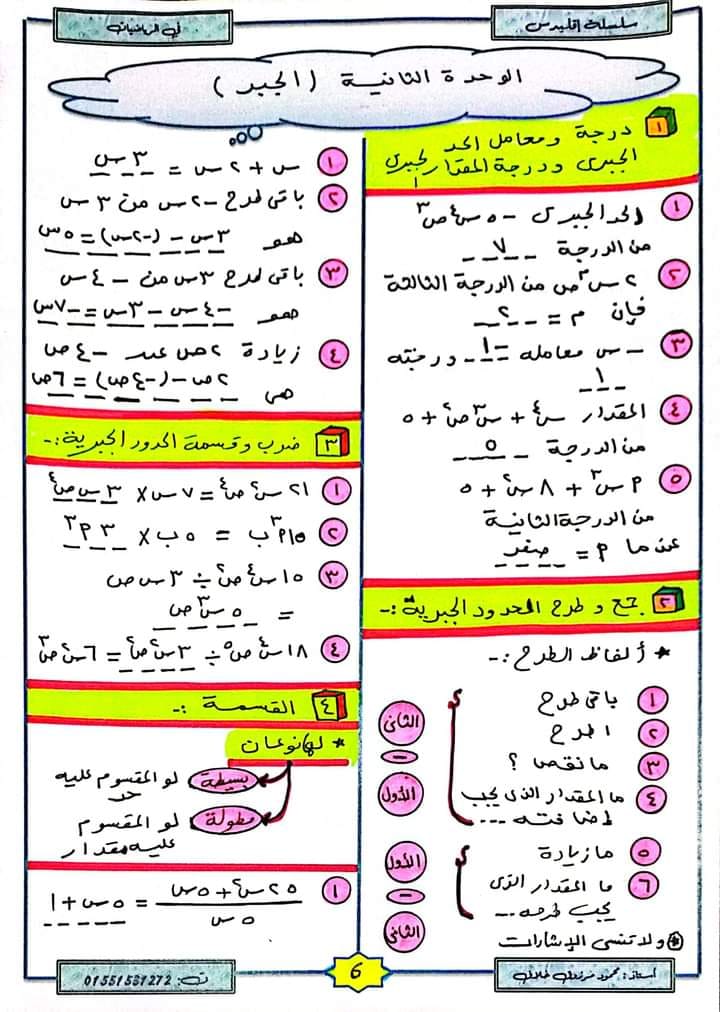 سلسلة اقليدس
في الرياضيات
الوحدة الثانية (الجبر)
١ درجة ومعامل الحد
الجبرى ودرجة المقدار الجبرى
١ الحد الجبرى -٥س٤ص٣
من الدرجة ٧
٢ ٢س٢ص من الدرجة الثالثة
فإن م = ٢
٣ -س معامله -١ ودرجته
١
٤ المقدار س٤ + س٣ص٢ + ٥
من الدرجة ٥
٥ ٩س٣ + ٨س٢ + ٥
من الدرجة الثانية
عن ما ٩ = صفر
٢ جمع وطرح الحدود الجبرية :-
* ألفاظ الطرح :-
١ باقى طرح
٢ اطرح
٣ ما نقص ؟
٤ ما المقدار الذى يجب
إضافته ...
الثانى
-
الأول
٥ ما زيادة
٦ ما المقدار الذى
يجب طرحه ...
الأول
-
الثانى
* ولا تنسى الإشارات
١ س + ٢س = ٣س
٢ باقى طرح -٢س من ٣س
هو ٣س - (-٢س) = ٥س
٣ باقى طرح ٣س من -٤س
هو -٤س - ٣س = -٧س
٤ زيادة ٢ص عند -٤ص
هى ٢ص - (-٤ص) = ٦ص
٣ ضرب وقسمة الحدود الجبرية :-
١ ٢١س٢ص٤ = ٧س × ٣س ص٤
٢ ١٥٩٣ب = ٥ب × ٣٩٣
٣ ١٥س٤ص٢ ÷ ٣س ص
= ٥س٣ص
٤ ١٨س٤ص٥ ÷ ٣س٢ص٢ = ٦س٢ص٣
٤ القسمة :-
* لها نوعان
بسيطة لو المقسوم عليه
حد
مطولة لو المقسوم
عليه مقدار
١ ٢٥س٢ + ٥س = ٥س + ١
٥س
أستاذ: محمود
6
ت: 01551581272